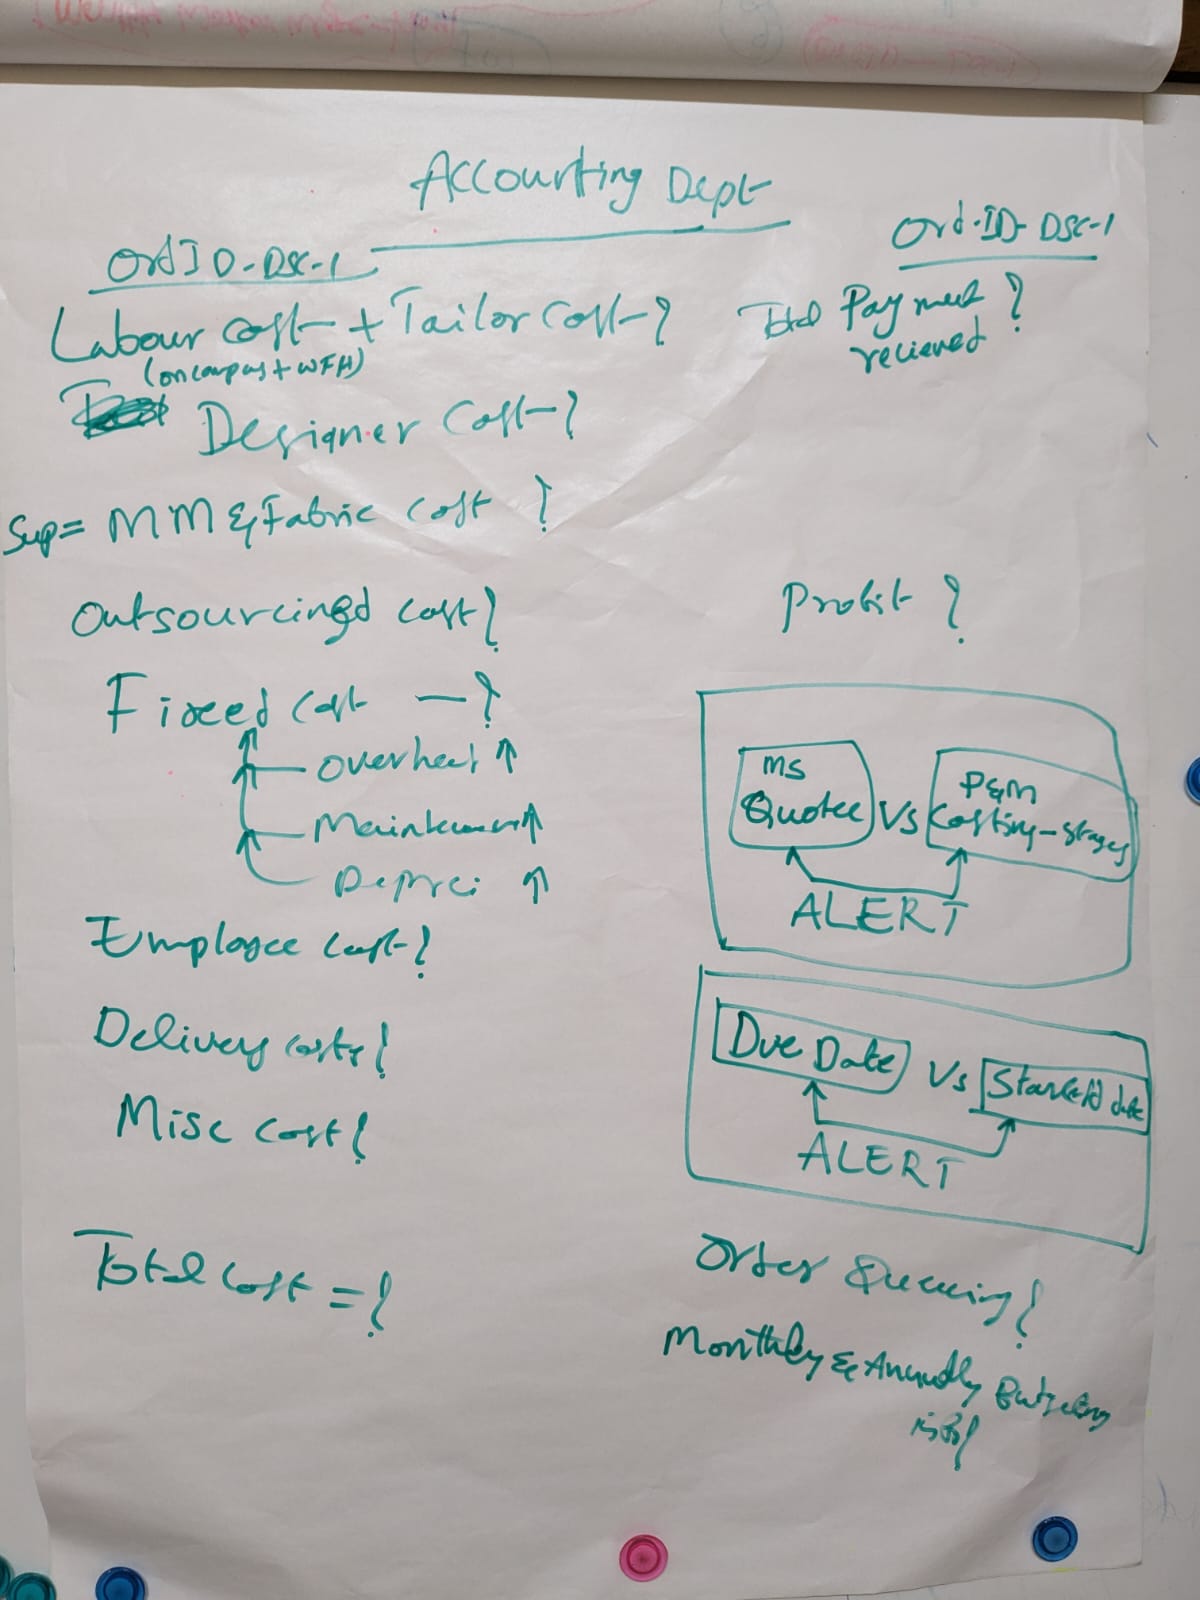 Accounting Dept
Ord ID-DSC-1
Labour cost + Tailor cost-?
(on campus + WFH)
Designer cost-?
Sup= MM & Fabric cost ?
Outsourcinged cost?
Fixeed cost -?
overhead ↑
↑
Deprci ↑
Employee cost-?
Delivery costs?
Misc cost?
Total cost = ?
Ord-ID-DSC-1
Total Payment ?
recieved
Profit ?
MS
Quotee
Vs
P&M
Costing-stages
ALERT
Due Date
Vs
date
ALERT
Order Queueing?
Monthly & Annually